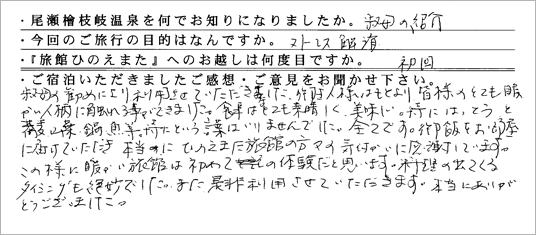 ・尾瀬檜枝岐温泉を何でお知りになりましたか。叔母の紹介
・今回のご旅行の目的はなんですか。ストレス解消
・『旅館ひのえまた』へのお越しは何度目ですか。初回
・ご宿泊いただきましたご感想・ご意見をお聞かせ下さい。
叔母の勧めにより利用させていただきましたが、皆様のとても暖
かい人柄に触れる事ができました。食事はとても素晴しく、美味しい。特には、とうふ
蕎麦、鍋、魚、という言葉はいりませんでした。全てです。御飯をお部屋
に届けていただき 本当に ひのえまた旅館の方々の気付かいに感謝しています。
この様に暖かい旅館は初めての体験だと思います。料理の出てくる
タイミングも絶妙でした。また是非利用させていただきます。本当にありが
とうございました。